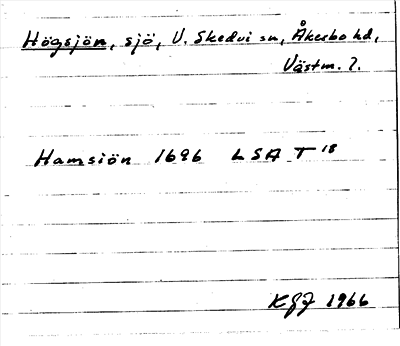 Högsjön, sjö, V. Skedvi sn, Åkerbo hd,
Västm. l.
Hamsiön 1696 LSA T 18
KGJ 1966